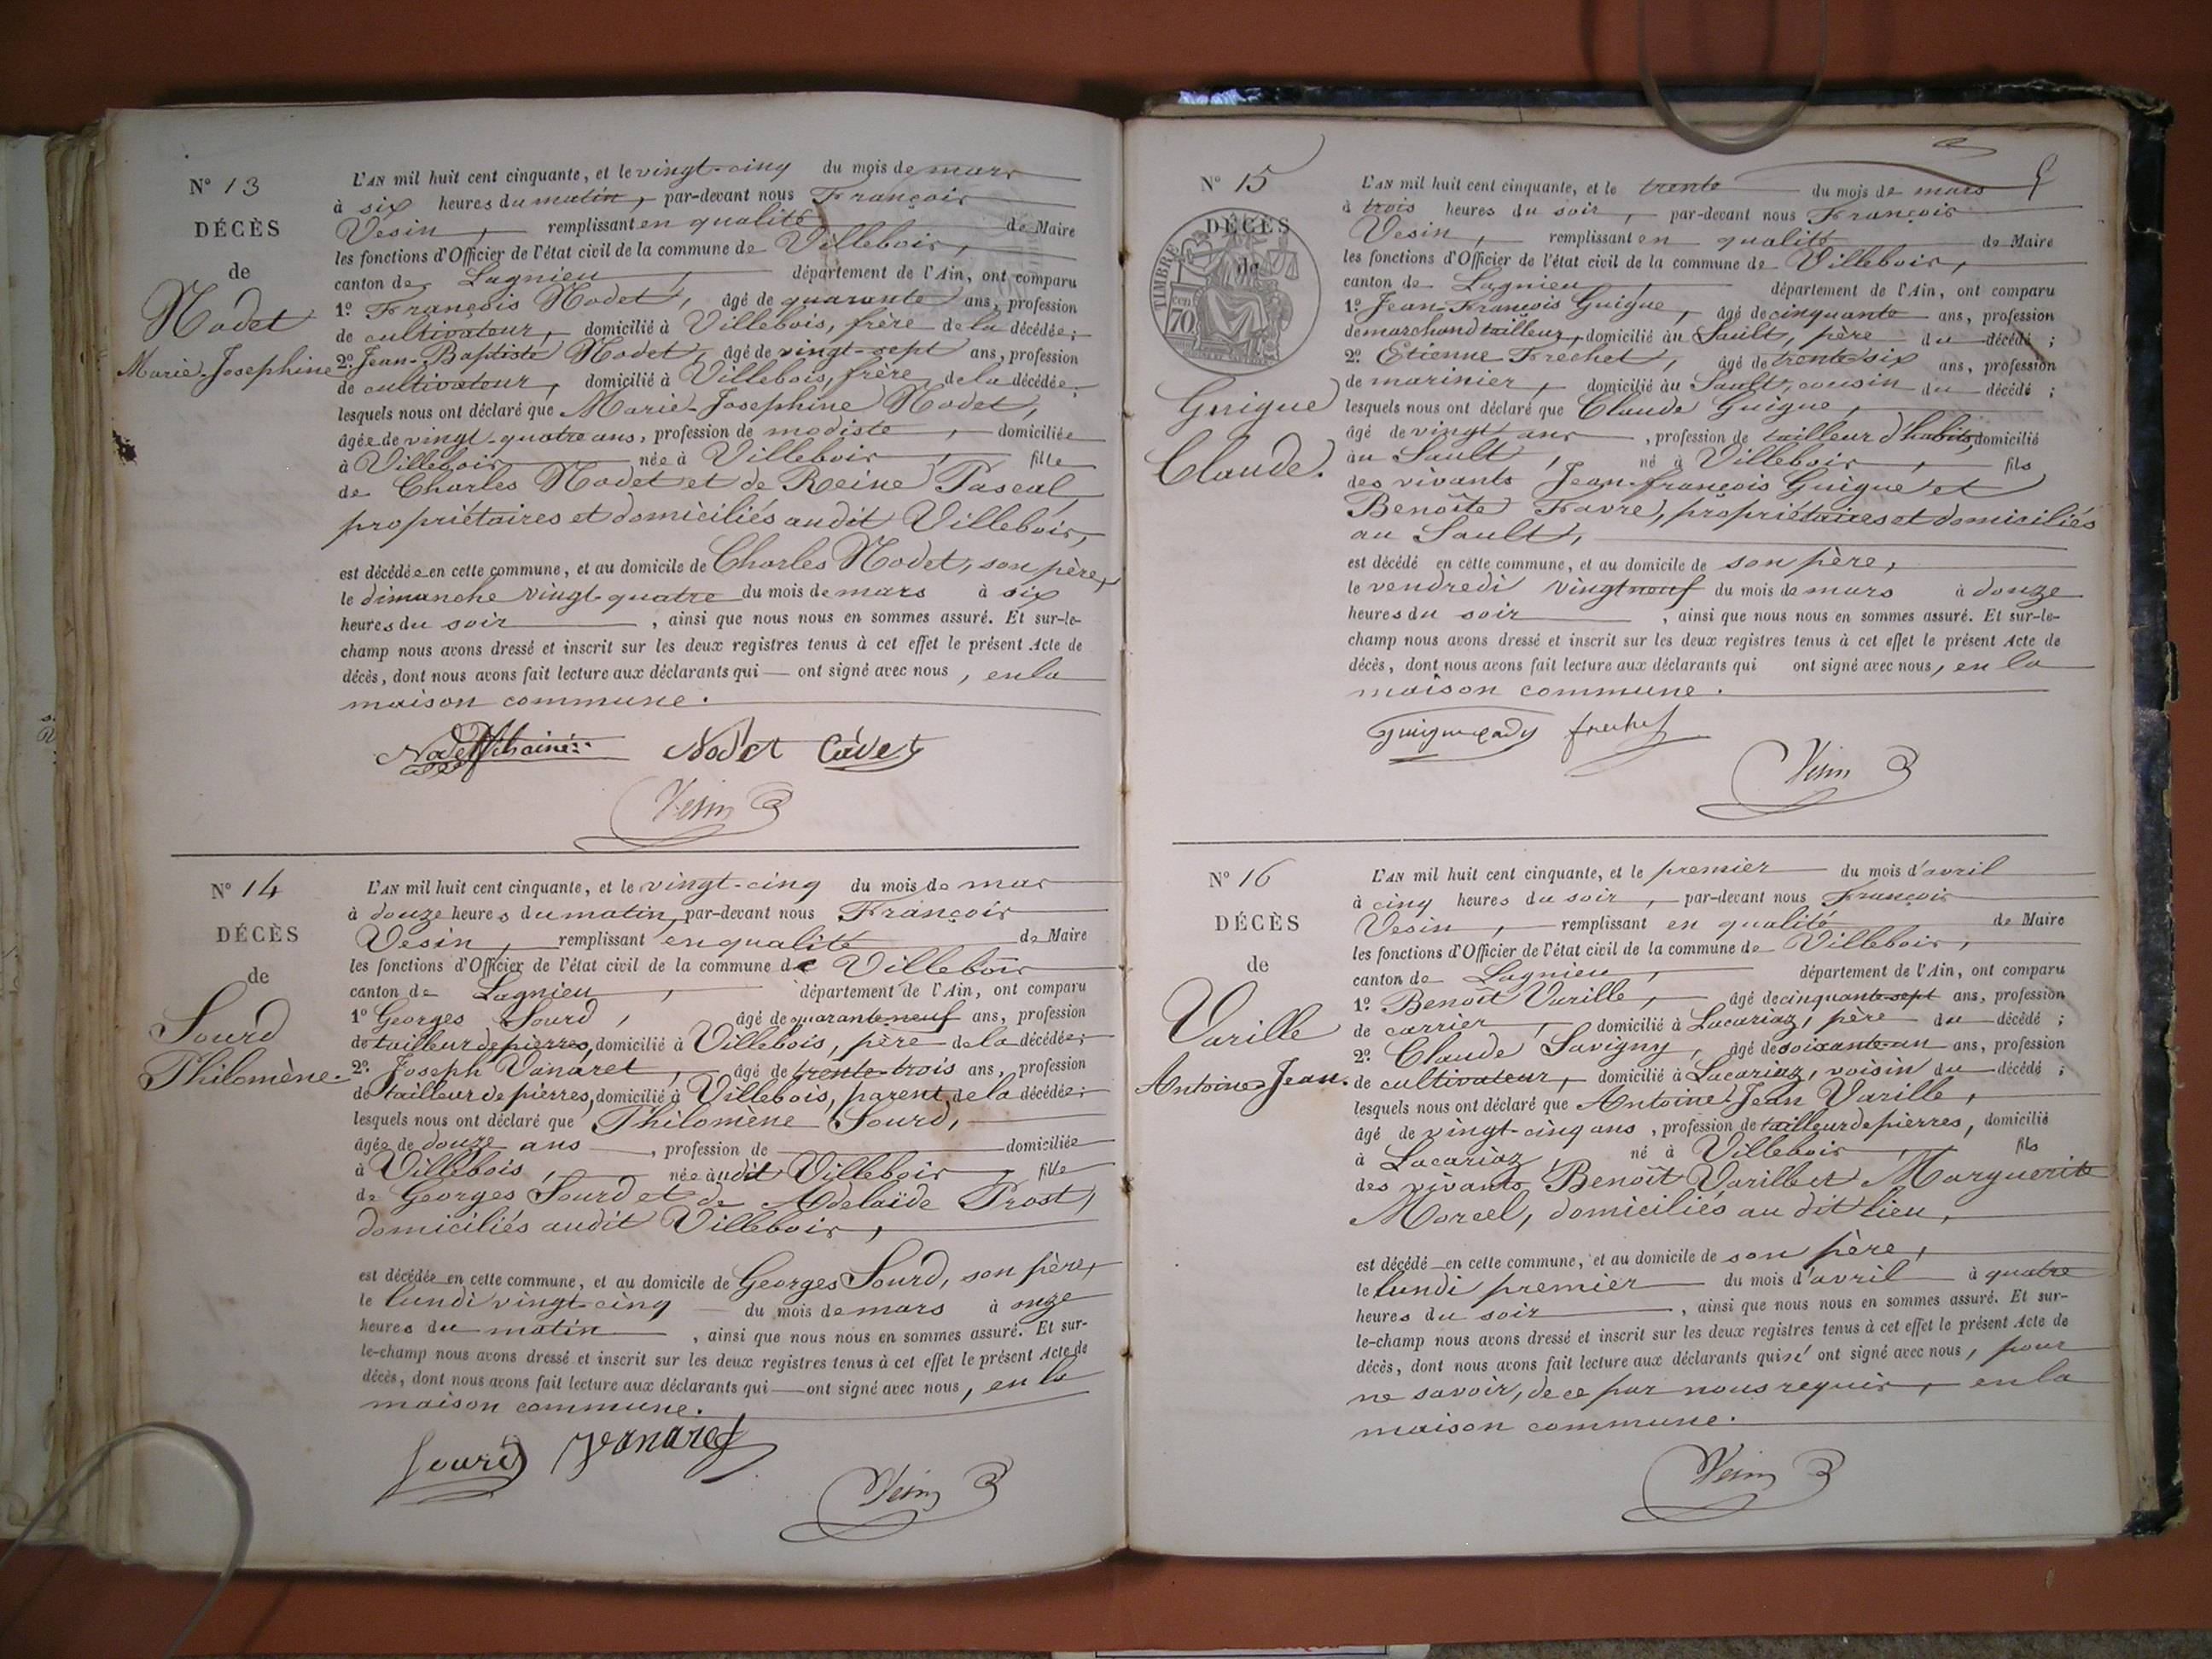 N° 13
DÉCÈS
de
Nodet
Marie-Josephine
L'AN mil huit cent cinquante, et le vingt-cinq du mois de mars
à six heures du matin, par-devant nous François
Vesin, remplissant en qualité de Maire
les fonctions d'Officier de l'état civil de la commune de Villebois,
canton de Lagnieu, département de l'Ain, ont comparu
1.° François Nodet, âgé de quarante ans, profession
de cultivateur, domicilié à Villebois, frère de la décédée;
2.° Jean-Baptiste Nodet, âgé de vingt-sept ans, profession
de cultivateur, domicilié à Villebois, frère de la décédée;
lesquels nous ont déclaré que Marie-Josephine Nodet,
âgée de vingt-quatre ans, profession de modiste, domiciliée
à Villebois née à Villebois, fille
de Charles Nodet et de Reine Pascal,
propriétaires et domiciliés audit Villebois,
est décédée en cette commune, et au domicile de Charles Nodet, son père,
le dimanche vingt-quatre du mois de mars à six
heures du soir, ainsi que nous nous en sommes assuré. Et sur-le-
champ nous avons dressé et inscrit sur les deux registres tenus à cet effet le présent Acte de
décès, dont nous avons fait lecture aux déclarants qui — ont signé avec nous, en la
maison commune.
Nodet Cadet
Vesin
N° 14
DÉCÈS
de
Sourd
Philomène.
L'AN mil huit cent cinquante, et le vingt-cinq du mois de mars
à douze heures du matin, par-devant nous François
Vesin, remplissant en qualité de Maire
les fonctions d'Officier de l'état civil de la commune de Villebois
canton de Lagnieu, département de l'Ain, ont comparu
1.° Georges Sourd, âgé de quarante-neuf ans, profession
de tailleur de pierres, domicilié à Villebois, père de la décédée;
2.° Joseph Vanaret, âgé de trente-trois ans, profession
de tailleur de pierres, domicilié à Villebois, parent de la décédée;
lesquels nous ont déclaré que Philomène Sourd,
âgée de douze ans, profession de domiciliée
à Villebois, née audit Villebois, fille
de Georges Sourd et de Adelaïde Prost,
domiciliés audit Villebois,
est décédée en cette commune, et au domicile de Georges Sourd, son père,
le lundi vingt-cinq du mois de mars à onze
heures du matin, ainsi que nous nous en sommes assuré. Et sur-
le-champ nous avons dressé et inscrit sur les deux registres tenus à cet effet le présent Acte de
décès, dont nous avons fait lecture aux déclarants qui — ont signé avec nous, en la
maison commune.
Sourd J Vanaret
Vesin
N° 15
TIMBRE
cen
70
DÉCÈS
de
Guigue
Claude.
L'AN mil huit cent cinquante, et le trente du mois de mars
à trois heures du soir, par-devant nous François
Vesin, remplissant en qualité de Maire
les fonctions d'Officier de l'état civil de la commune de Villebois,
canton de Lagnieu, département de l'Ain, ont comparu
1.° Jean-François Guigue, âgé de cinquante ans, profession
de marchand tailleur, domicilié au Sault, père du décédé;
2.° Etienne Frechet, âgé de trente-six ans, profession
de marinier, domicilié au Sault, cousin du décédé;
lesquels nous ont déclaré que Claude Guigue,
âgé de vingt ans, profession de tailleur d'habits, domicilié
au Sault, né à Villebois, fils
des vivants Jean-françois Guigue et
Benoîte Favre, propriétaires et domiciliés
au Sault,
est décédé en cette commune, et au domicile de son père,
le vendredi vingt neuf du mois de mars à douze
heures du soir, ainsi que nous nous en sommes assuré. Et sur-le-
champ nous avons dressé et inscrit sur les deux registres tenus à cet effet le présent Acte de
décès, dont nous avons fait lecture aux déclarants qui ont signé avec nous, en la
maison commune.
frechet
Vesin
N° 16
DÉCÈS
de
Varille
Antoine-Jean.
L'AN mil huit cent cinquante, et le premier du mois d'avril
à cinq heures du soir, par-devant nous François
Vesin, remplissant en qualité de Maire
les fonctions d'Officier de l'état civil de la commune de Villebois,
canton de Lagnieu, département de l'Ain, ont comparu
1.° Benoît Varille, âgé de cinquante-sept ans, profession
de carrier, domicilié à Lacariaz, père du décédé;
2.° Claude Savigny, âgé de soixante-un ans, profession
de cultivateur, domicilié à Lacariaz, voisin du décédé;
lesquels nous ont déclaré que Antoine-Jean Varille,
âgé de vingt-cinq ans, profession de tailleur de pierres, domicilié
à Lacariaz, né à Villebois, fils
des vivants Benoît Varille et Marguerite
Morcel, domiciliés au dit lieu,
est décédé en cette commune, et au domicile de son père,
le lundi premier du mois d'avril à quatre
heures du soir, ainsi que nous nous en sommes assuré. Et sur-
le-champ nous avons dressé et inscrit sur les deux registres tenus à cet effet le présent Acte de
décès, dont nous avons fait lecture aux déclarants qui n'ont signé avec nous, pour
ne savoir, de ce par nous requis, en la
maison commune.
Vesin